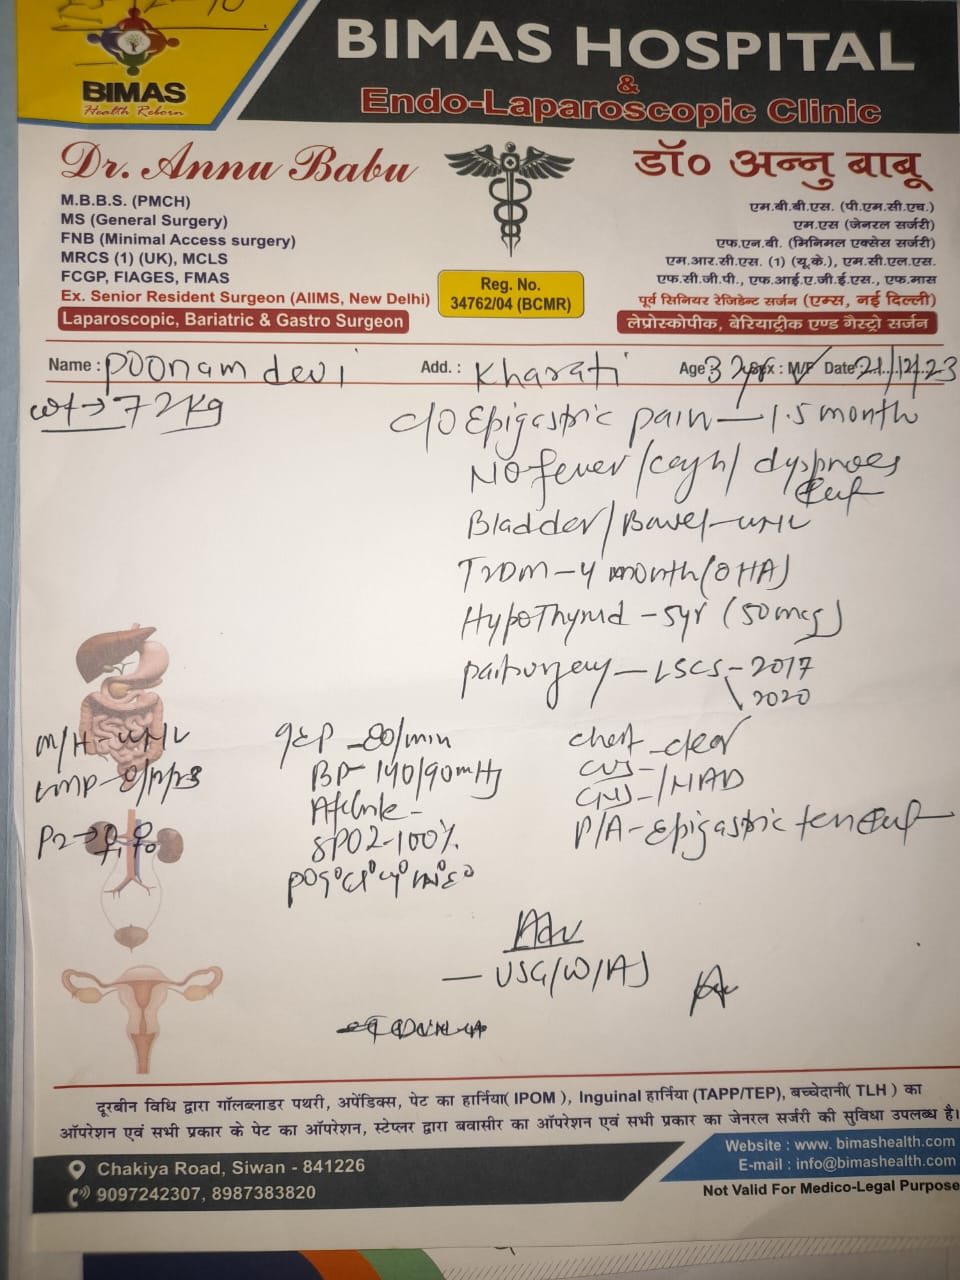 BIMAS
Health Reborn
BIMAS HOSPITAL
&
Endo-Laparoscopic Clinic
Dr. Annu Babu
M.B.B.S. (PMCH)
MS (General Surgery)
FNB (Minimal Access surgery)
MRCS (1) (UK), MCLS
FCGP, FIAGES, FMAS
Ex. Senior Resident Surgeon (AIIMS, New Delhi)
Laparoscopic, Bariatric & Gastro Surgeon
Reg. No.
34762/04 (BCMR)
डॉ० अन्नु बाबू
एम.बी.बी.एस. (पी.एम.सी.एच.)
एम.एस (जेनरल सर्जरी)
एफ.एन.बी. (मिनिमल एक्सेस सर्जरी)
एम.आर.सी.एस. (1) (यू.के.), एम.सी.एल.एस.
एफ.सी.जी.पी., एफ.आई.ए.जी.ई.एस., एफ.मास
पूर्व सिनियर रेजिडेन्ट सर्जन (एम्स, नई दिल्ली)
लेप्रोस्कोपीक, बेरियाट्रीक एण्ड गैस्ट्रो सर्जन
Name : Poonam devi Add. : Kharati Age : 32 yrs Sex : M/F Date : 21/12/23
wt → 72 kg
c/o Epigastric pain - 1.5 month
No fever / cough / dyspnoea
Bladder / Bowel -
T2DM - 4 month (OHA)
Hypothyroid - 5yr (50mcg)
past surgery - LSCS - 2017
2020
M/H -
LMP -
P2 →
- 80/min
BP - 140/90mmHg
Afebrile -
SPO2 - 100%
chest - clear
CVS -
CNS - / NAD
P/A - Epigastric
Adv
- USG/W/A
दूरबीन विधि द्वारा गॉलब्लाडर पथरी, अपेंडिक्स, पेट का हार्निया( IPOM ), Inguinal हार्निया (TAPP/TEP), बच्चेदानी( TLH ) का
ऑपरेशन एवं सभी प्रकार के पेट का ऑपरेशन, स्टेप्लर द्वारा बवासीर का ऑपरेशन एवं सभी प्रकार का जेनरल सर्जरी की सुविधा उपलब्ध है।
Chakiya Road, Siwan - 841226
9097242307, 8987383820
Website : www. bimashealth.com
E-mail : info@bimashealth.com
Not Valid For Medico-Legal Purpose